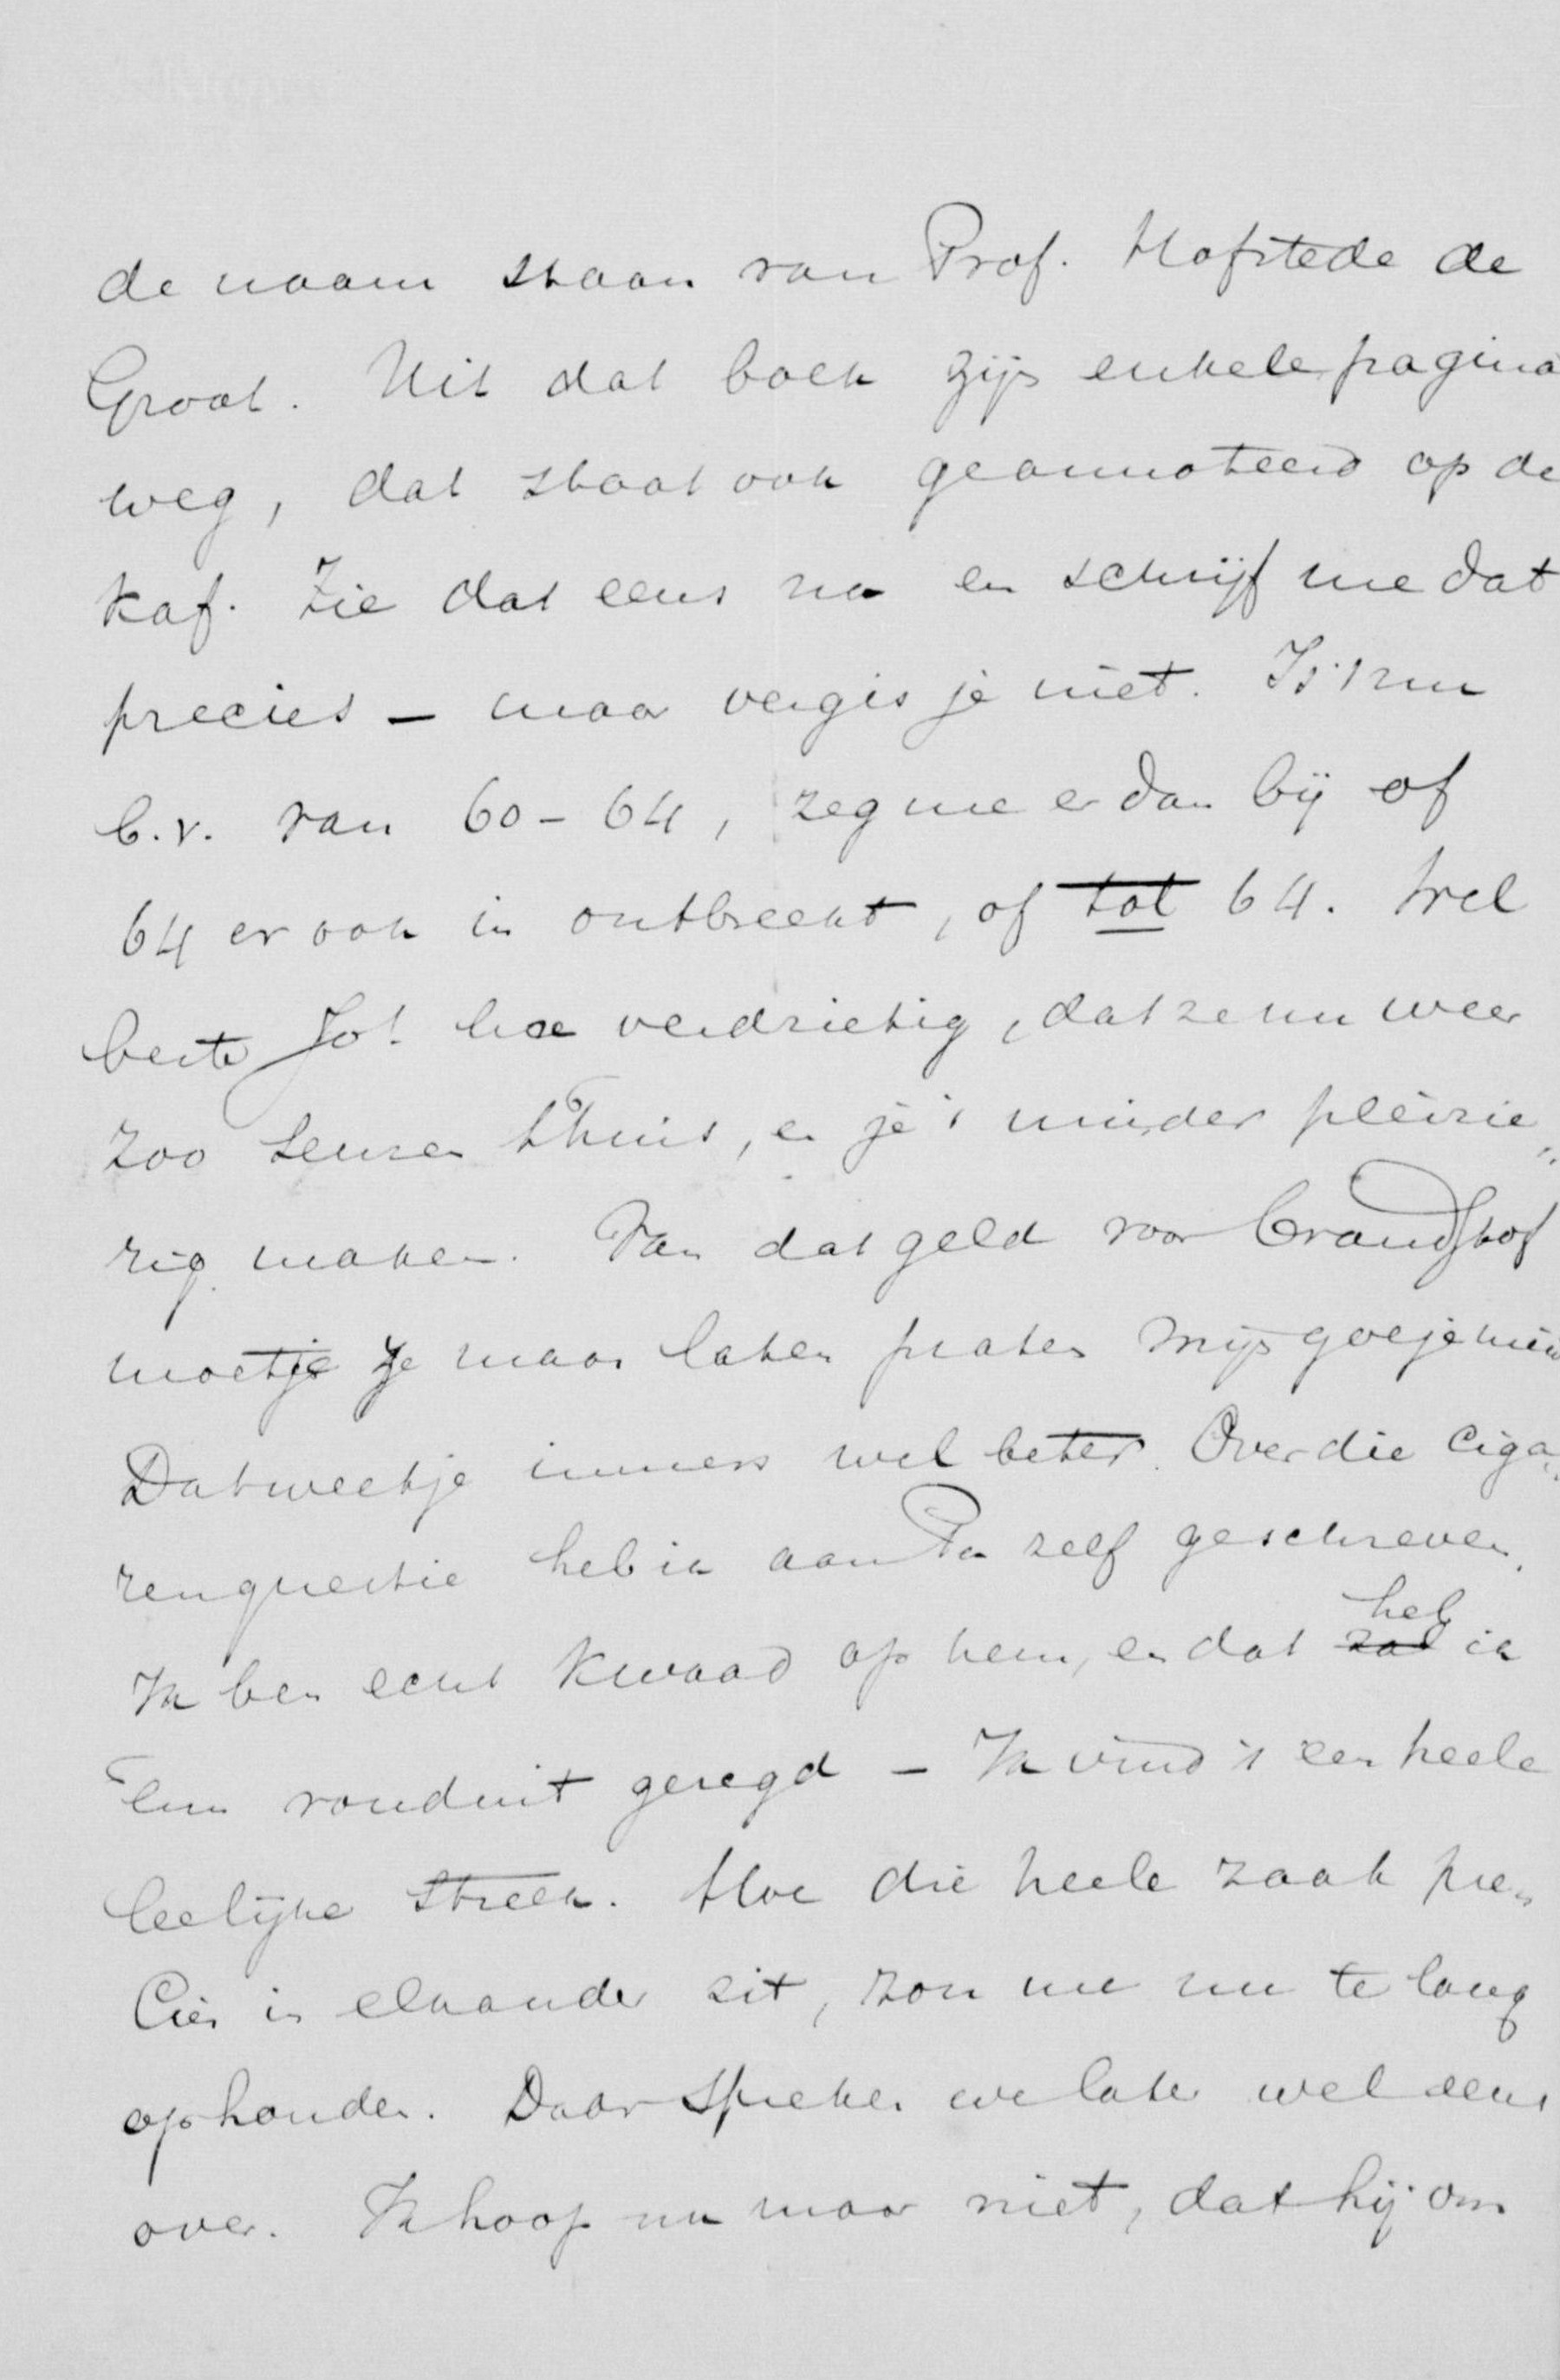 de naam staan van Prof. Hofstede de
Groot. Uit dat boek zijn enkele pagina
weg, dat staat ook geannoteerd op de
kaf. Zie dat eens na en schrijf me dat
precies — maar vergis je niet. Is 't nu
b.v. van 60-64, zeg me er dan bij of
64 er ook in ontbreekt, of tot 64. Wel
beste Jo! hoe verdrietig, dat ze nu weer
zoo zeuren thuis, en je 't minder pleizie„
rig maken. Van dat geld voor brandstof
moet je ze maar laten praten mijn goeje
Dat weet je immers wel beter. Over die ciga„
renquestie heb ik aan Pa zelf geschreven.
Ik ben echt kwaad op hem, en dat zal heb ik
'em ronduit gezegd — Ik vind 't een heele
leelijke streek. Hoe die heele zaak pre„
cies in elkaander zit, zou me nu te lang
ophouden. Daar spreken we later wel eens
over. Ik hoop nu maar niet, dat hij om